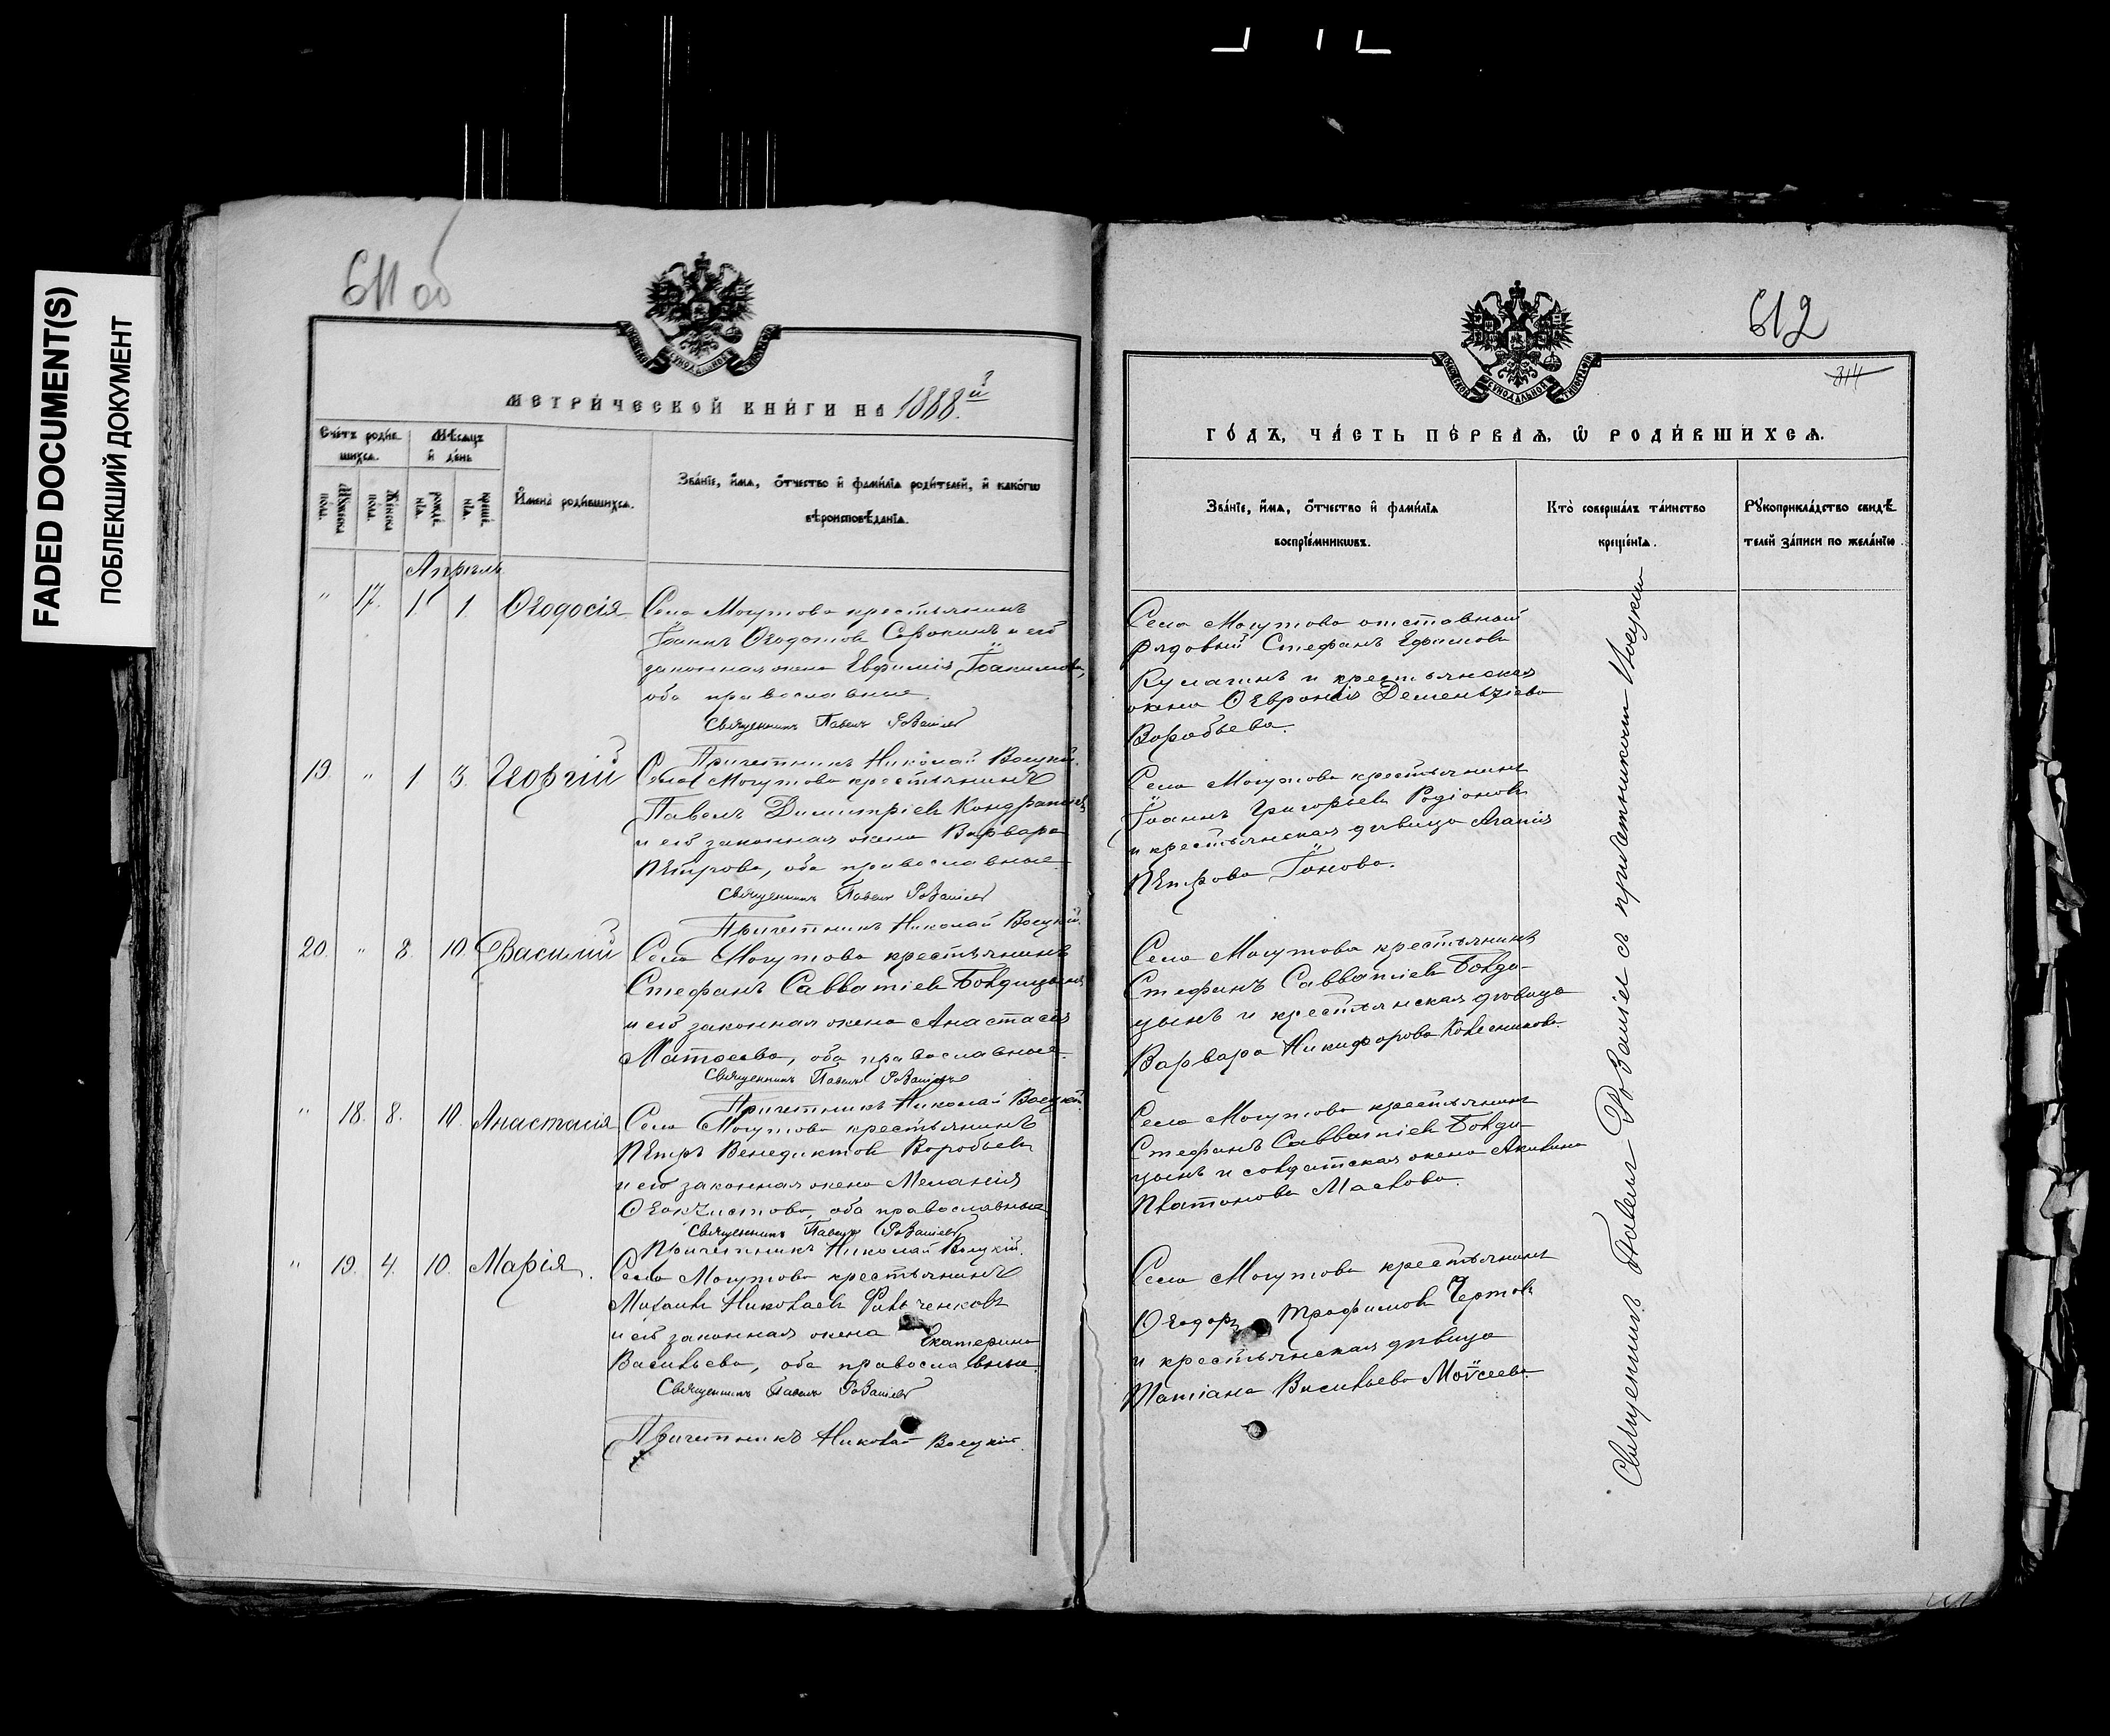 FADED DOCUMENT(S)
ПОБЛЕКШИЙ ДОКУМЕНТ
611 об
МЕТРИ́ЧЕСКОЙ КНИ́ГИ НА 1888.й
Сче́тъ роди́в-
шихсѧ.
Мѣ́сѧцъ
и҆ де́нь
Мꙋ́жеска
по́ла.
Же́нска
по́ла.
рожде́-
нїѧ.
креще́-
нїѧ.
И҆мена̀ роди́вшихсѧ.
Зва́нїе, и҆́мѧ, ѻ҆́тчество и҆ фами́лїѧ роди́телей, и҆ како́гѡ
вѣроисповѣ́данїѧ.
Апрѣль
" 17. 1. 1. Ѳеодосія
Села Могутова крестьянинъ
Іоаннъ Ѳеодотовъ Сорокинъ и его
законная жена Евфимія Іоакимова,
оба православные.
Священникъ Павелъ
Причетникъ Николай
19. " 1 3. Георгій
Села Могутова крестьянинъ
Павелъ Димитріевъ
и его законная жена Варвара
Петрова, оба православные
Священникъ Павелъ
Причетникъ Николай
20. " 8. 10. Василій
Села Могутова крестьянинъ
Стефанъ Савватіевъ
и его законная жена Анастасія
Матѳеева, оба православные
Священникъ Павелъ
Причетникъ Николай
" 18. 8. 10. Анастасія
Села Могутова крестьянинъ
Петръ Венедиктовъ Воробьевъ
и его законная жена Меланія
Ѳеоктистова, оба православные
Священникъ Павелъ
Причетникъ Николай
" 19. 4. 10. Марія.
Села Могутова крестьянинъ
Михаилъ Николаевъ Фильченковъ
и его законная жена Екатерина
Васильева, оба православные
Священникъ Павелъ
Причетникъ Николай
612
314
ГО́ДЪ, ЧА́СТЬ ПЕ́РВАѦ, Ѡ҆ РОДИ́ВШИХСѦ.
Зва́нїе, и҆́мѧ, ѻ҆́тчество и҆ фами́лїѧ
воспрїе́мникѡвъ.
Кто̀ соверша́лъ та́инство
креще́нїѧ.
Рꙋкоприкла́дство свидѣ́-
телей за́писи по жела́нїю.
Села Могутова отставный
рядовый Стефанъ Ефимовъ
Кулагинъ и крестьянская
жена Ѳевронія Дементьева
Воробьева.
Села Могутова крестьянинъ
Іоаннъ Григорьевъ Родіоновъ
и крестьянская дѣвица Агапія
Петрова Іонова.
Села Могутова крестьянинъ
Стефанъ Савватіевъ Болди-
цынъ и крестьянская дѣвица
Варвара Никифорова Колесникова.
Села Могутова крестьянинъ
Стефанъ Савватіевъ Болди-
цынъ и солдатская жена Акилина
Платонова Маслова.
Села Могутова крестьянинъ
Ѳеодоръ Трофимовъ Чертовъ
и крестьянская дѣвица
Татіана Васильева Моѵсеева.
Священникъ Павелъ съ причетникомъ